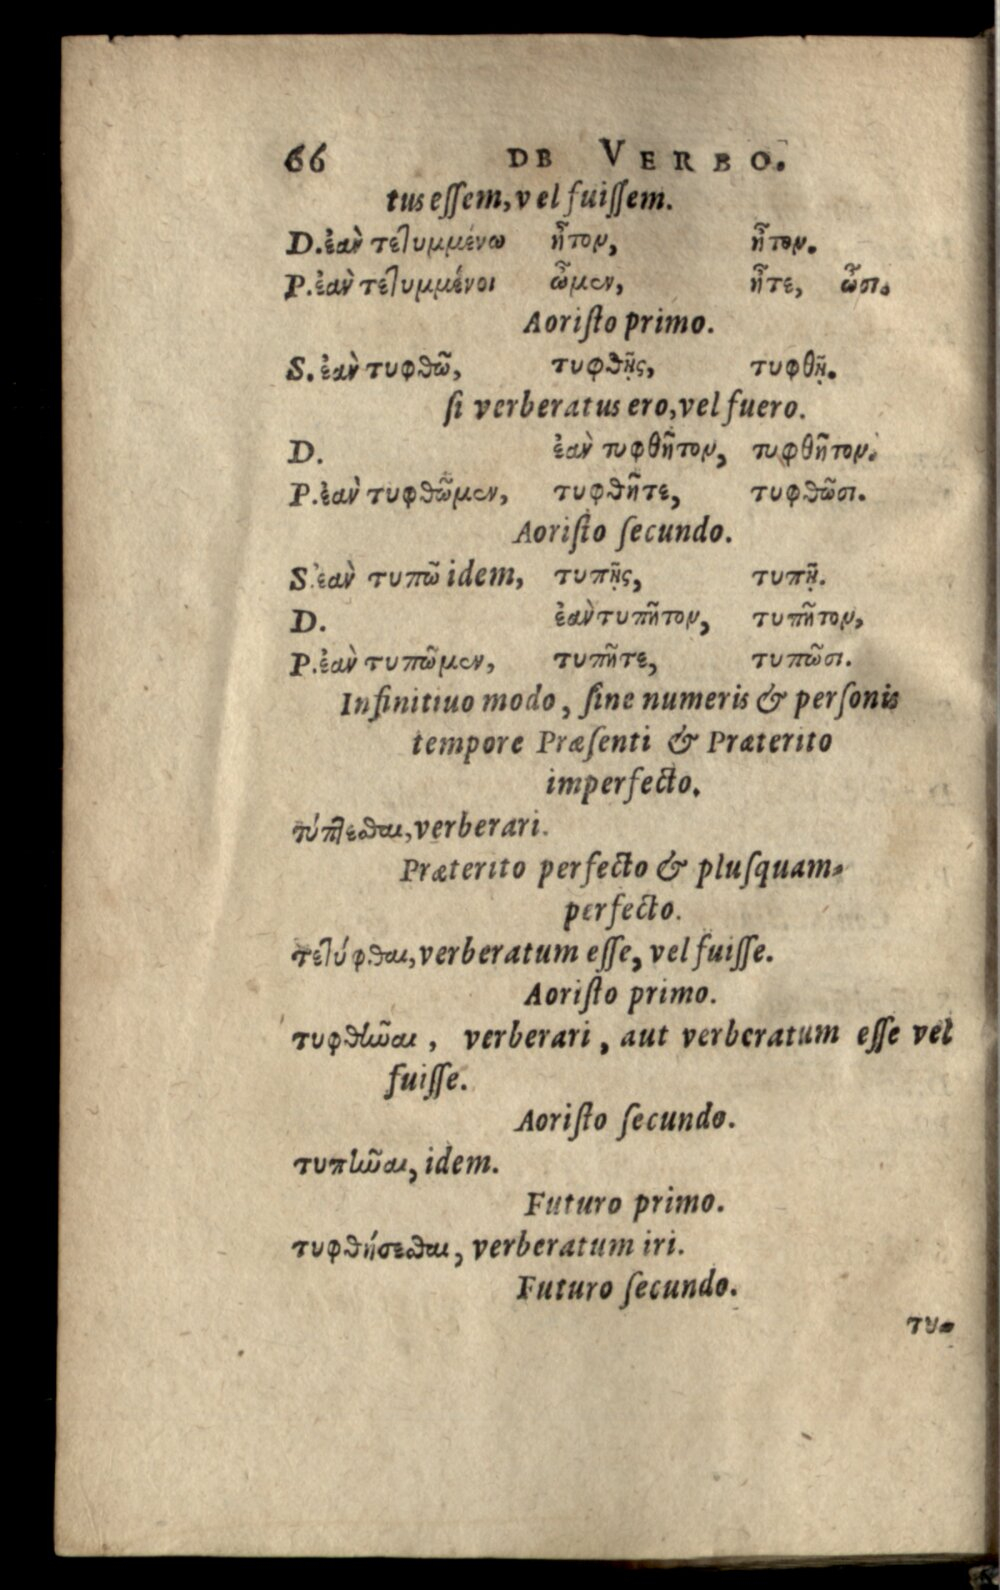 66 DE VERBO.
tus eſſem, vel fuiſſem.
D. ἐὰν τετυμμένω ἦτον, ἦτον.
P. ἐὰν τετυμμένοι ὦμεν, ἦτε, ὦσι.
Aoriſto primo.
S. ἐὰν τυφθῶ, τυφθῇς, τυφθῇ.
ſi verberatus ero, vel fuero.
D. ἐὰν τυφθῆτον, τυφθῆτον.
P. ἐὰν τυφθῶμεν, τυφθῆτε, τυφθῶσι.
Aoriſto ſecundo.
S. ἐὰν τυπῶ idem, τυπῇς, τυπῇ.
D. ἐὰν τυπῆτον, τυπῆτον,
P. ἐὰν τυπῶμεν, τυπῆτε, τυπῶσι.
Infinitiuo modo, ſine numeris & perſonis
tempore Præſenti & Præterito
imperfecto.
τύπτεσθαι, verberari.
Præterito perfecto & pluſquam-
perfecto.
τετύφθαι, verberatum eſſe, vel fuiſſe.
Aoriſto primo.
τυφθῆναι, verberari, aut verberatum eſſe vel
fuiſſe.
Aoriſto ſecundo.
τυπῆναι, idem.
Futuro primo.
τυφθήσεσθαι, verberatum iri.
Futuro ſecundo.
τυ-